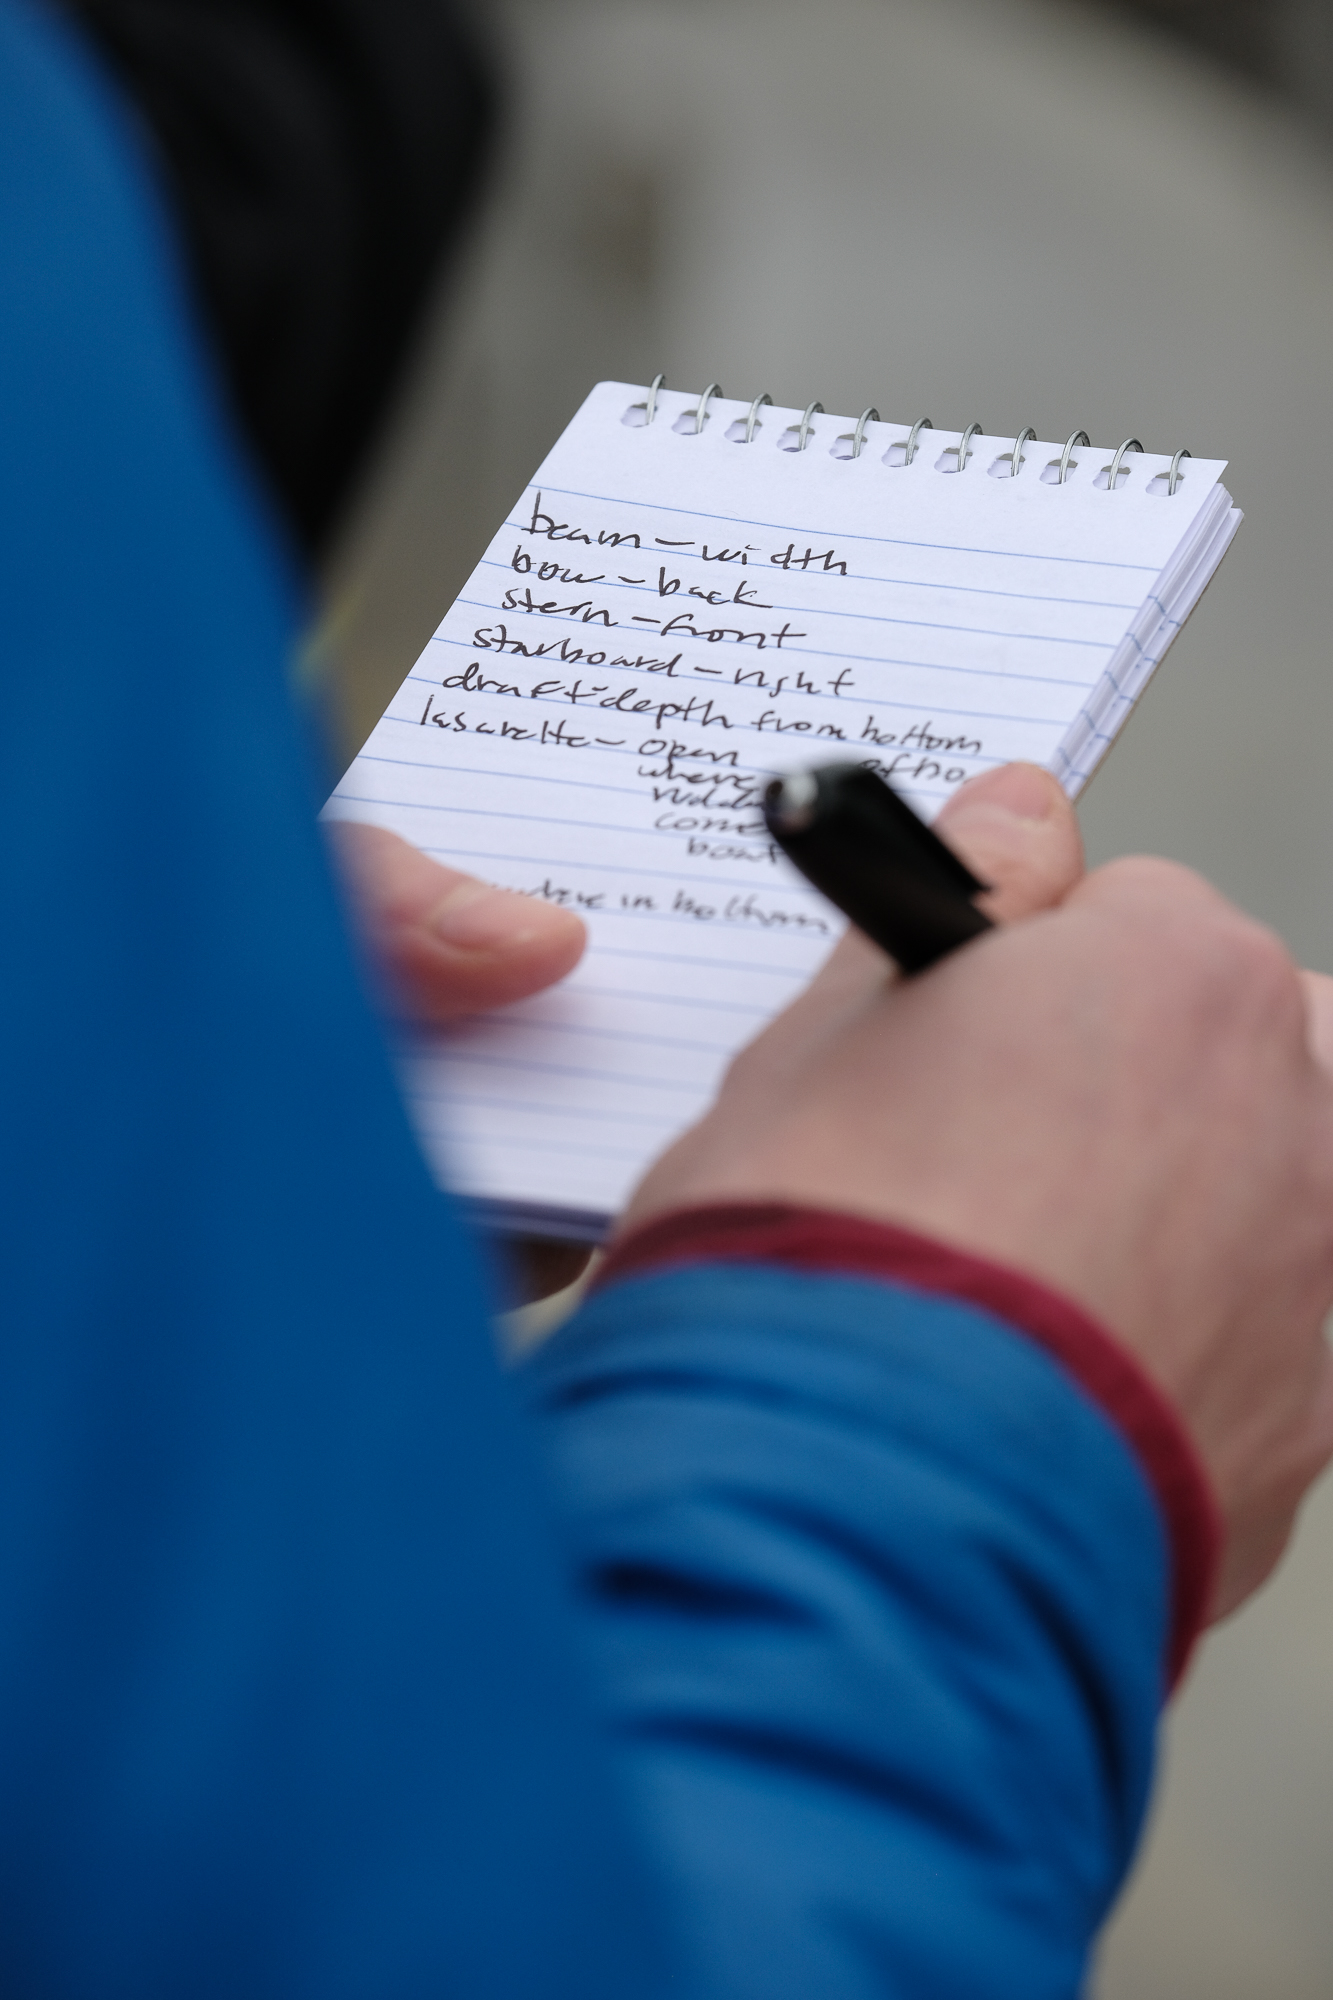 beam - width
bow - back
stern - front
starboard - right
draft - depth from bottom
lasarette - open
where
come
boat
in bottom